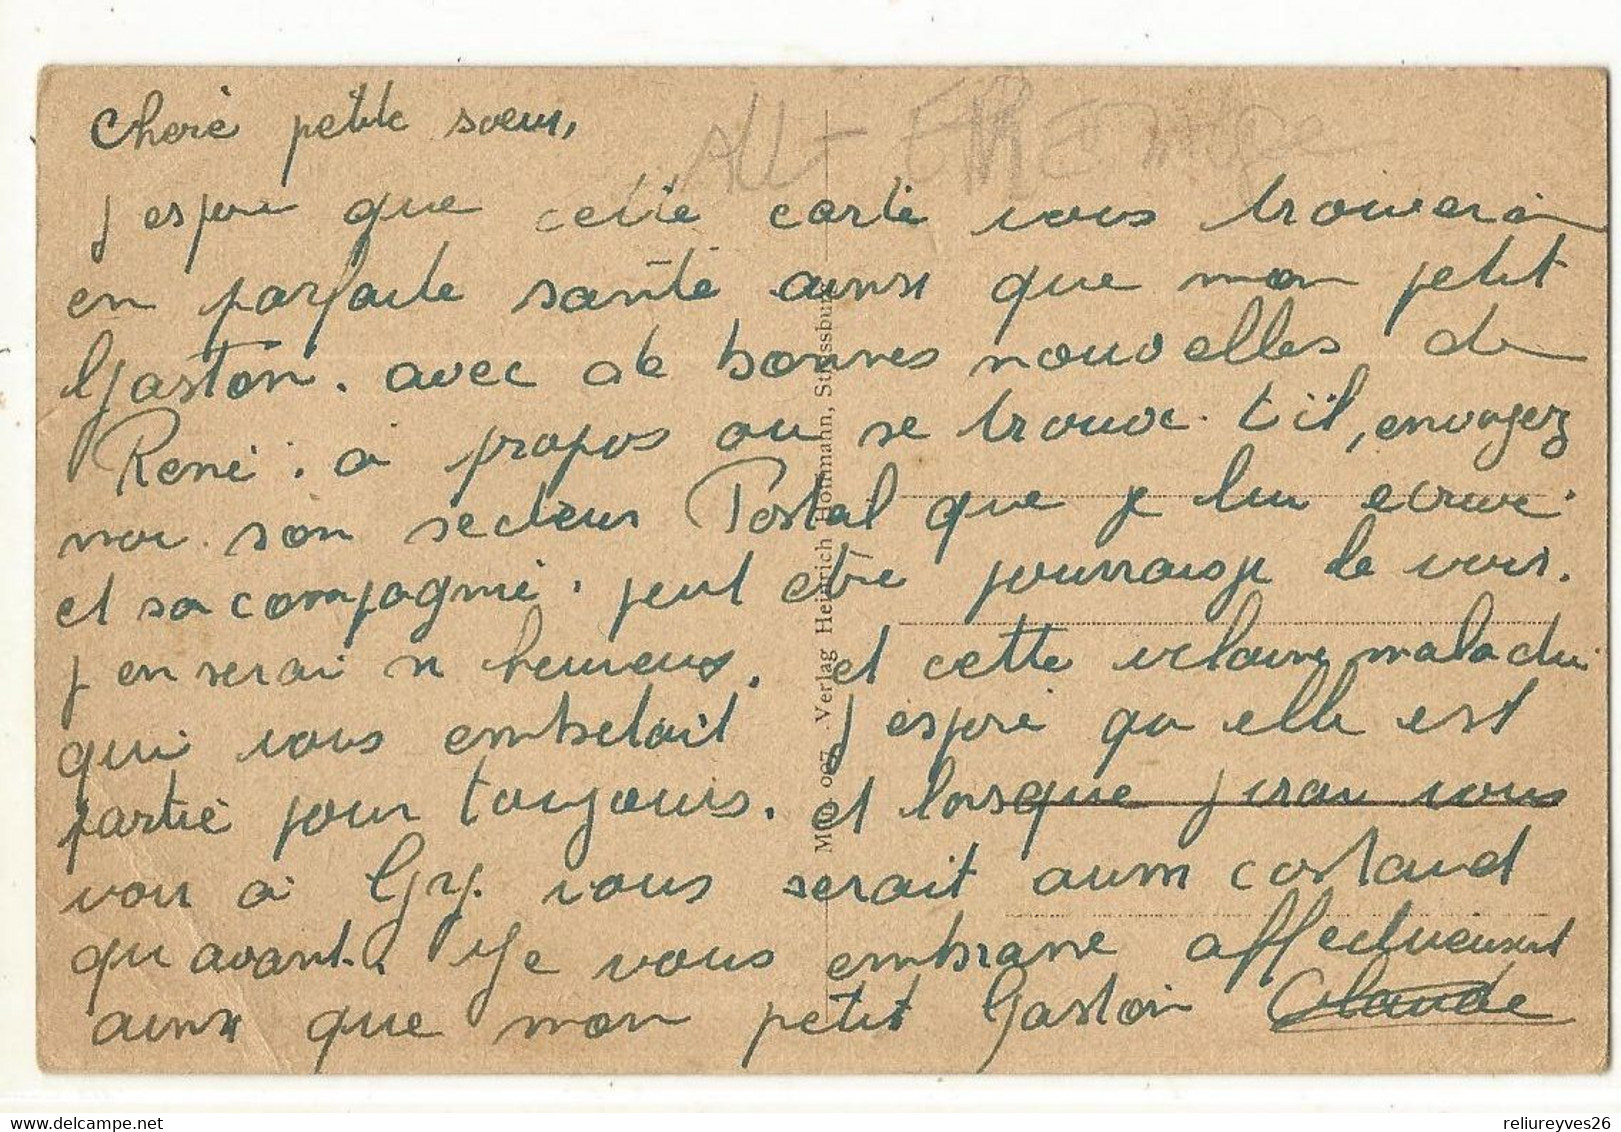 Cherè petite soeur,
j espere que cette carte vous trouvera
en parfaite santé ainsi que mon petit
Gaston. avec de bonnes nouvelles de
René. à propos ou se trouve t il, envoyez
moi son secteur Postal que je lui ecrive.
et sa compagnie. peut etre pourraisje le voir.
j en serai si heureux. et cette vilaine maladie
qui vous embetait j espere qu elle est
partie pour toujours. et lorsque j irai vous
voir a Gy. vous serait aussi costaud
qu avant. Je vous embrasse affectueusement
ainsi que mon petit Gaston Claude
Verlag Heinrich Hommann, Strassburg
reliureyves26